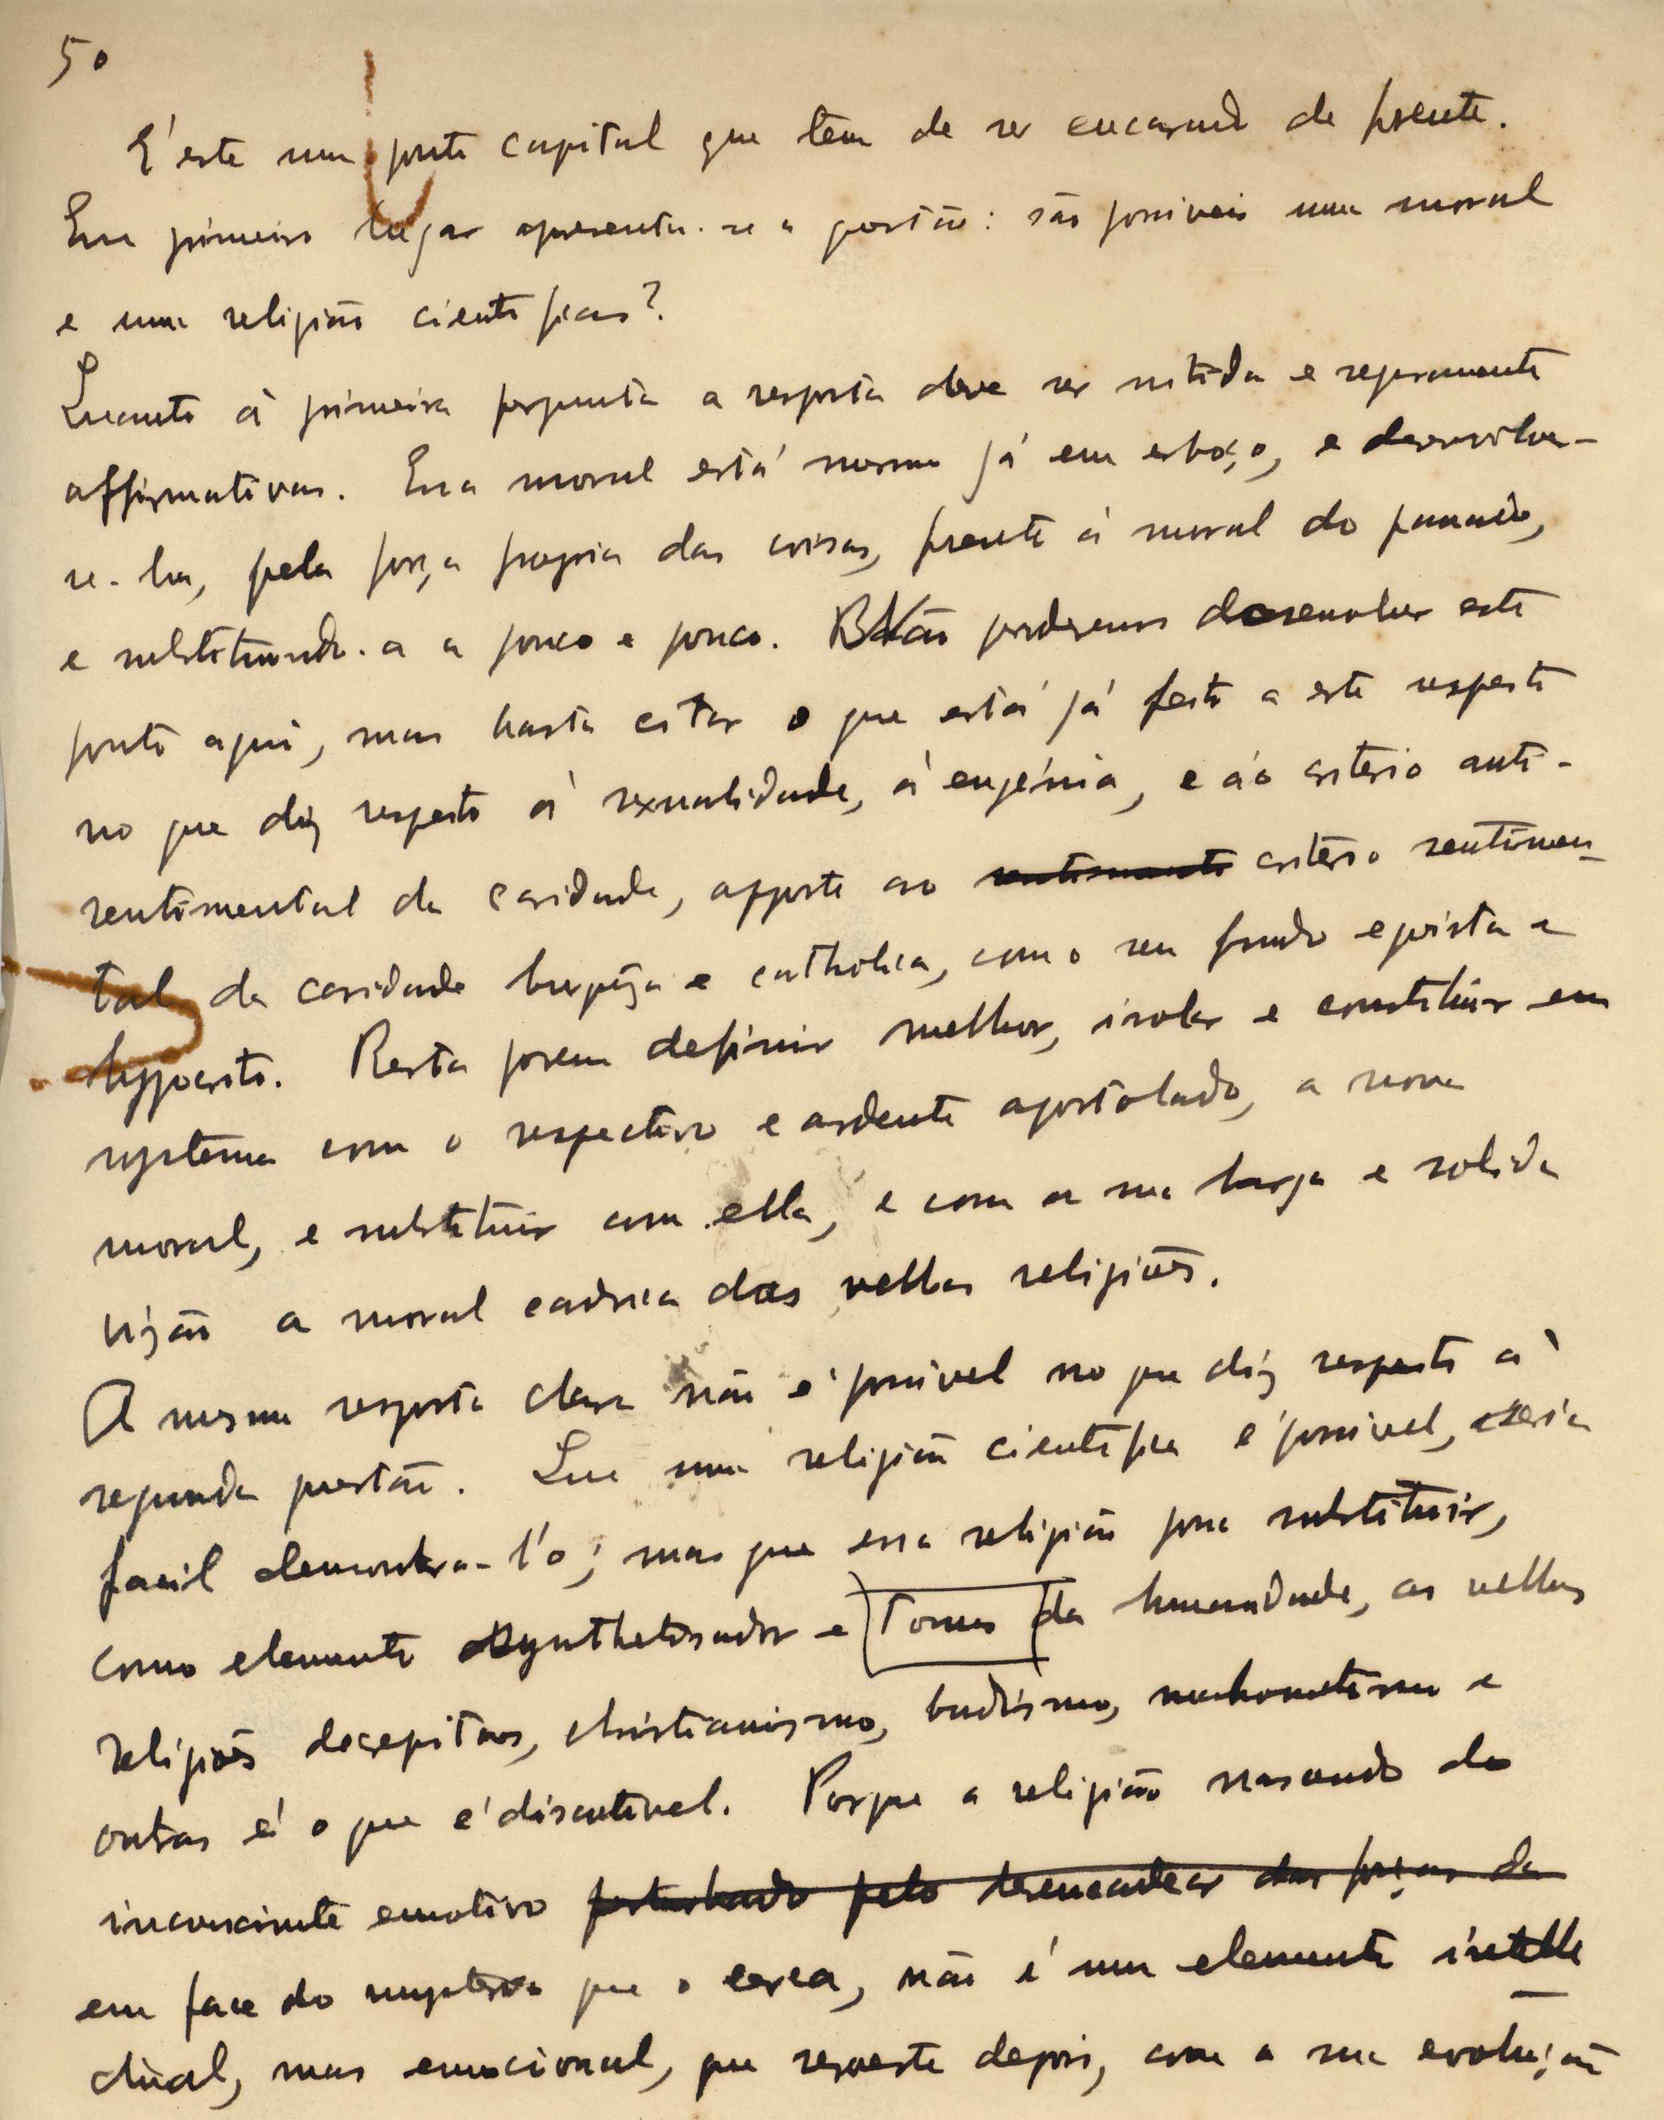 50
E' este um ponto capital que tem de ser encarado de frente.
Em primeiro lugar apresenta-se a questão: são possiveis uma moral
e uma religião cientificas?
Quanto á primeira pergunta a resposta deve ser nitida e seguramente
affirmativas. Essa moral está mesmo já em esboço, e desenvolve-
se-ha, pela força propria das coisas, frente á moral do passado,
e substituindo-a a pouco e pouco. Não poderemos desenvolver este
ponto aqui, mas basta citar o que está já feito a este respeito
no que diz respeito á sexualidade, á eugénia, e ao criterio anti-
sentimental da caridade, opposto ao sentimento criterio sentimen-
tal da caridade burguêza e catholica, com o seu fundo egoista e
hyppocrita. Resta porem definir melhor, isolar e constituir em
systema com o respectivo e ardente apostolado, a nova
moral, e substituir com ella, e com a sua larga e solida
visão a moral caduca das velhas religiões.
A mesma resposta clara não é possivel no que diz respeito á
segunda questão. Que uma religião cientifica é possivel, seria
facil demonstra-l'o; mas que essa religião possa substituir,
como elemento synthetisador e Tonus da humanidade, as velhas
religiões decrepitas, christianismo, budismo, mahometismo e
outras é o que é discutivel. Porque a religião nascendo do
inconsciente emotivo perturbado pelo desencadear das forças da
em face do mysterio que o cerca, não é um elemento intelle
ctual, mas emocional, que reveste depois, com a sua evolução